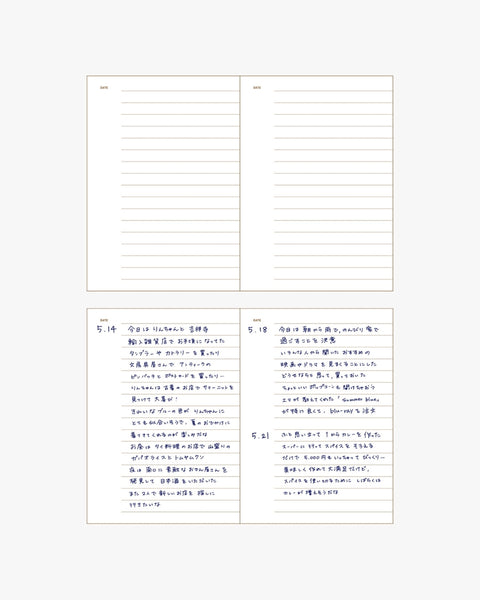 DATE
DATE
DATE
5.14
今日は りんちゃんと 吉祥寺
輸入雑貨店で お手頃になってた
タンブラーや カトラリーを 買ったり
文房具屋さんで アンティークの
ピンバッチと ポストカードを 買ったりー
りんちゃんは 古着の お店で サマーニットを
見つけて 大喜び!
きれいな ブルーの 色が りんちゃんに
とても 似合いそうで、夏の おでかけに
着てきてくれるのが 楽しみだな
お昼は タイ料理の お店で 山盛りの
ガパオライスと トムヤムクン
夜は 南口に 素敵な おでん屋さんを
発見して 日本酒を いただいた
また 2人で 新しい お店を 探しに
行きたいな
DATE
5.18
今日は 朝から 雨で、のんびり 家で
過ごすことを 決意
いろんな人から 聞いた おすすめの
映画や ドラマを 見まくることにした
どうせならと 思って、買っておいた
ちょっといい ポップコーンも 開けちゃおう
エマが 教えてくれた「Summer blue」
が 特に 良くて、blu-rayを 注文
5.21
ふと 思い立って 1から カレーを 作った
スーパーに 行って スパイスを そろえる
だけで 5,000円も いっちゃって びっくりー
美味しく 作れて 大満足だけど、
スパイスを 使い切るために しばらくは
カレーが 増えそうだな